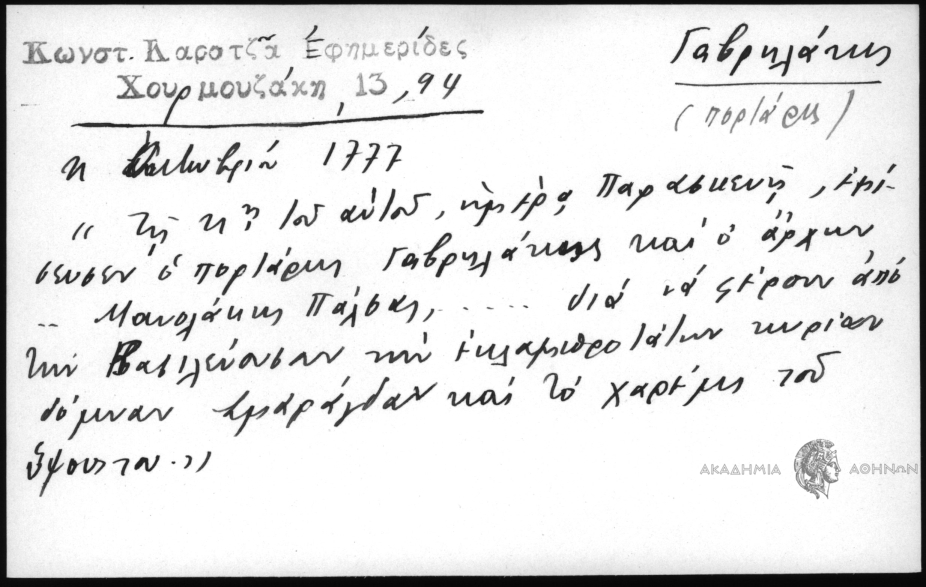 Κωνστ. Καρατζᾶ Ἐφημερίδες
Χουρμουζάκη, 13, 94
Γαβριηλάκης
(πορτάρης)
η Ὀκτωβρίου 1777
" Τῇ κῃ τοῦ αὐτοῦ, ἡμέρᾳ Παρασκευῇ, ἐμί-
σευσεν ὁ πορτάρης Γαβριηλάκης καί ὁ ἄρχων
.. Μανολάκης ..... διά νά φέρουν ἀπό
τήν Βασιλεύουσαν τήν ἐκλαμπροτάτην κυρίαν
δόμναν Σμαράγδαν καί τό χαρέμι τοῦ
ὕψους του."
ΑΚΑΔΗΜΙΑ ΑΘΗΝΩΝ